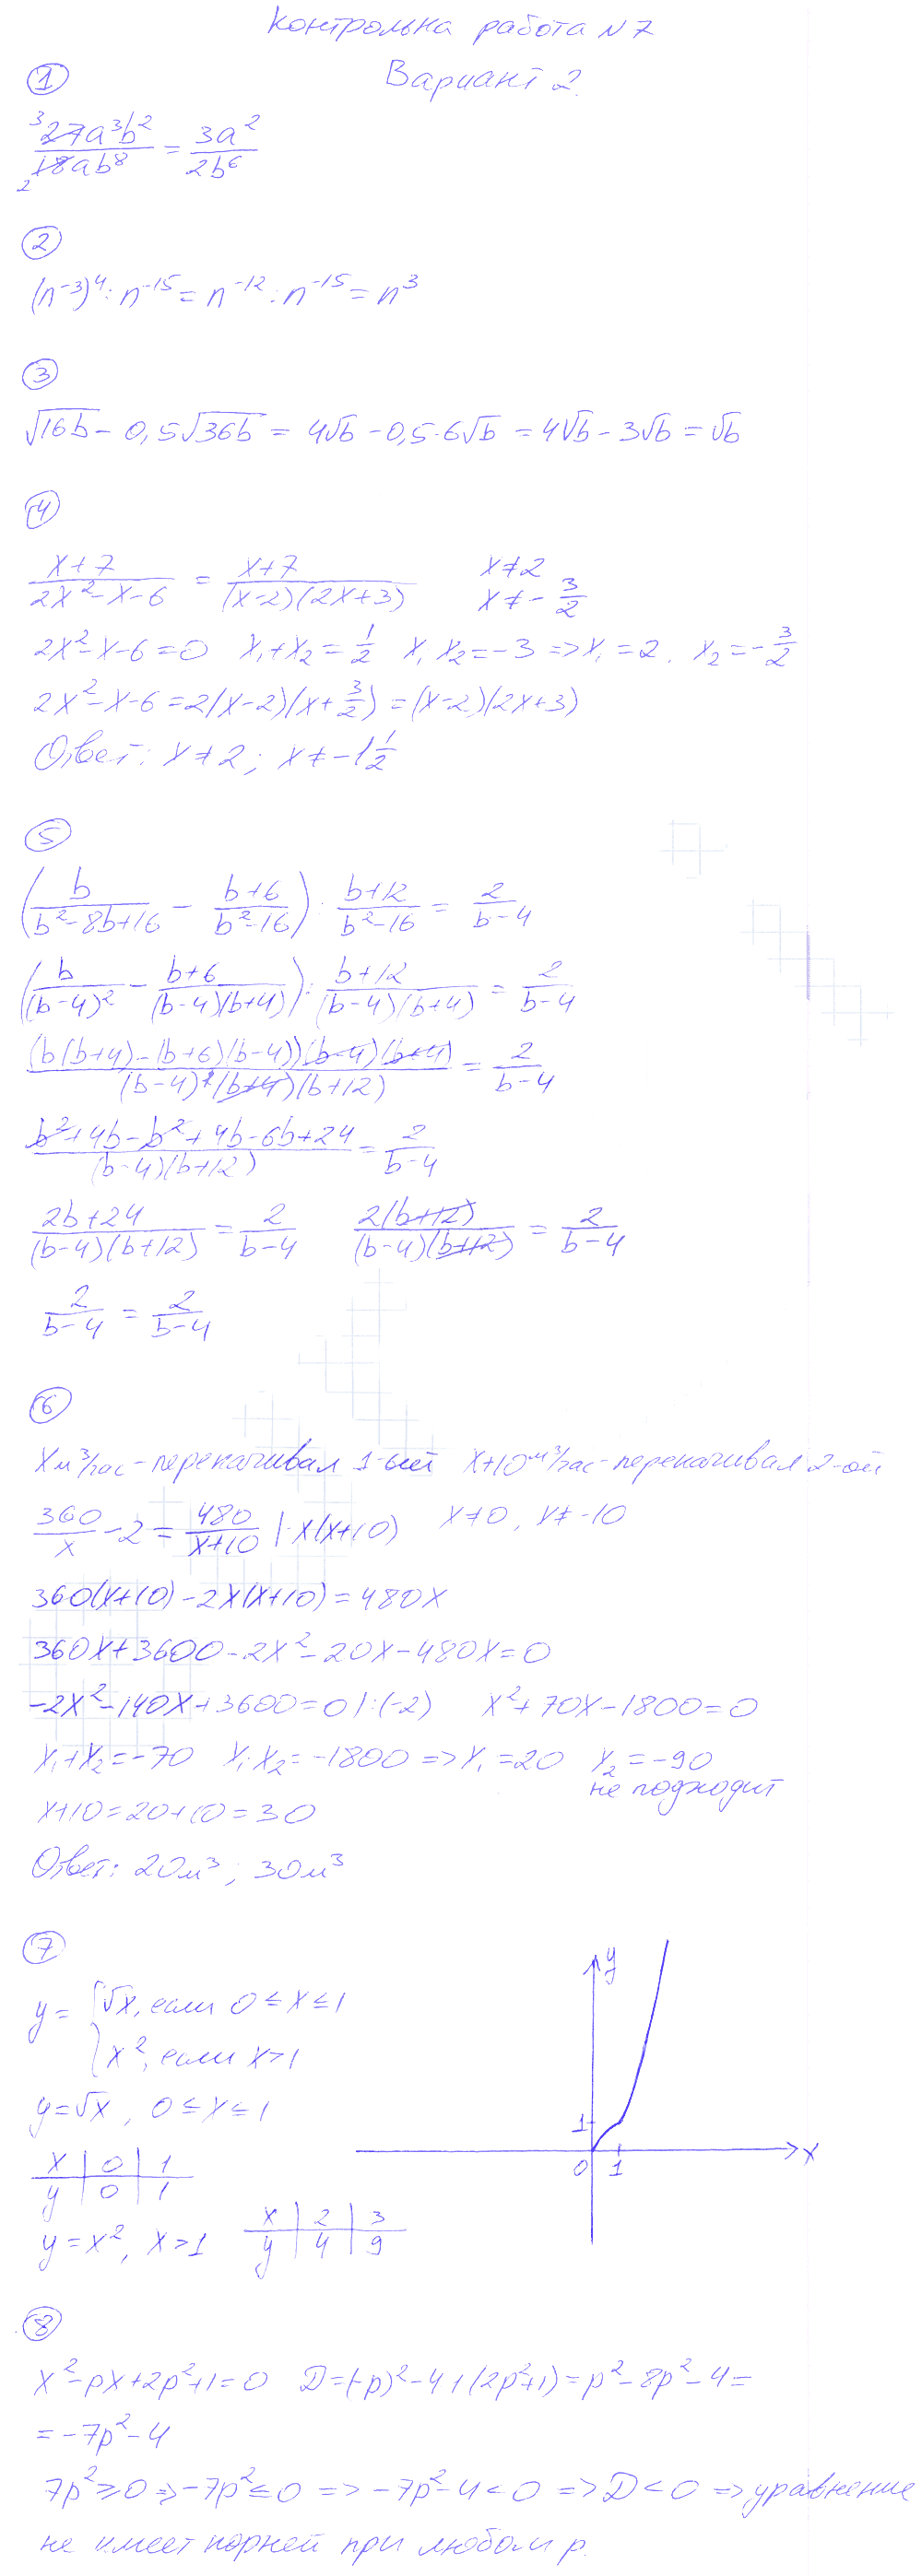 Контрольна работа N7
Вариант 2.
1
27a³b²/18ab⁸ = 3a²/2b⁶ 3 2
2
(n⁻³)⁴ : n⁻¹⁵ = n⁻¹² : n⁻¹⁵ = n³
3
√16b - 0,5√36b = 4√b - 0,5·6√b = 4√b - 3√b = √b
4
(x+7)/(2x²-x-6) = (x+7)/((x-2)(2x+3)) x≠2
x≠-3/2
2x²-x-6=0 x₁+x₂=1/2 x₁x₂=-3 => x₁=2. x₂=-3/2
2x²-x-6=2(x-2)(x+3/2)=(x-2)(2x+3)
Ответ: x≠2; x≠-1 1/2
5
(b/(b²-8b+16) - (b+6)/(b²-16)) : (b+12)/(b²-16) = 2/(b-4)
(b/(b-4)² - (b+6)/((b-4)(b+4))) : (b+12)/((b-4)(b+4)) = 2/(b-4)
((b(b+4)-(b+6)(b-4))(b-4)(b+4))/((b-4)²(b+4)(b+12)) = 2/(b-4)
(b²+4b-b²+4b-6b+24)/((b-4)(b+12)) = 2/(b-4)
(2b+24)/((b-4)(b+12)) = 2/(b-4) 2(b+12)/((b-4)(b+12)) = 2/(b-4)
2/(b-4) = 2/(b-4)
6
x м³/час - перекачивал 1-ый x+10 м³/час - перекачивал 2-ой
360/x - 2 = 480/(x+10) |·x(x+10) x≠0, x≠-10
360(x+10)-2x(x+10)=480x
360x+3600-2x²-20x-480x=0
-2x²-140x+3600=0 |:(-2) x²+70x-1800=0
x₁+x₂=-70 x₁x₂=-1800 => x₁=20 x₂=-90
не подходит
x+10=20+10=30
Ответ: 20м³; 30м³
7
y = { √x, если 0≤x≤1
x², если x>1
y=√x, 0≤x≤1
x | 0 | 1
y | 0 | 1
y=x², x>1
x | 2 | 3
y | 4 | 9
y
1
0 1 x
8
x²-px+2p²+1=0 D=(-p)²-4·1(2p²+1)=p²-8p²-4=
=-7p²-4
7p²≥0 => -7p²≤0 => -7p²-4<0 => D<0 => уравнение
не имеет корней при любом p.